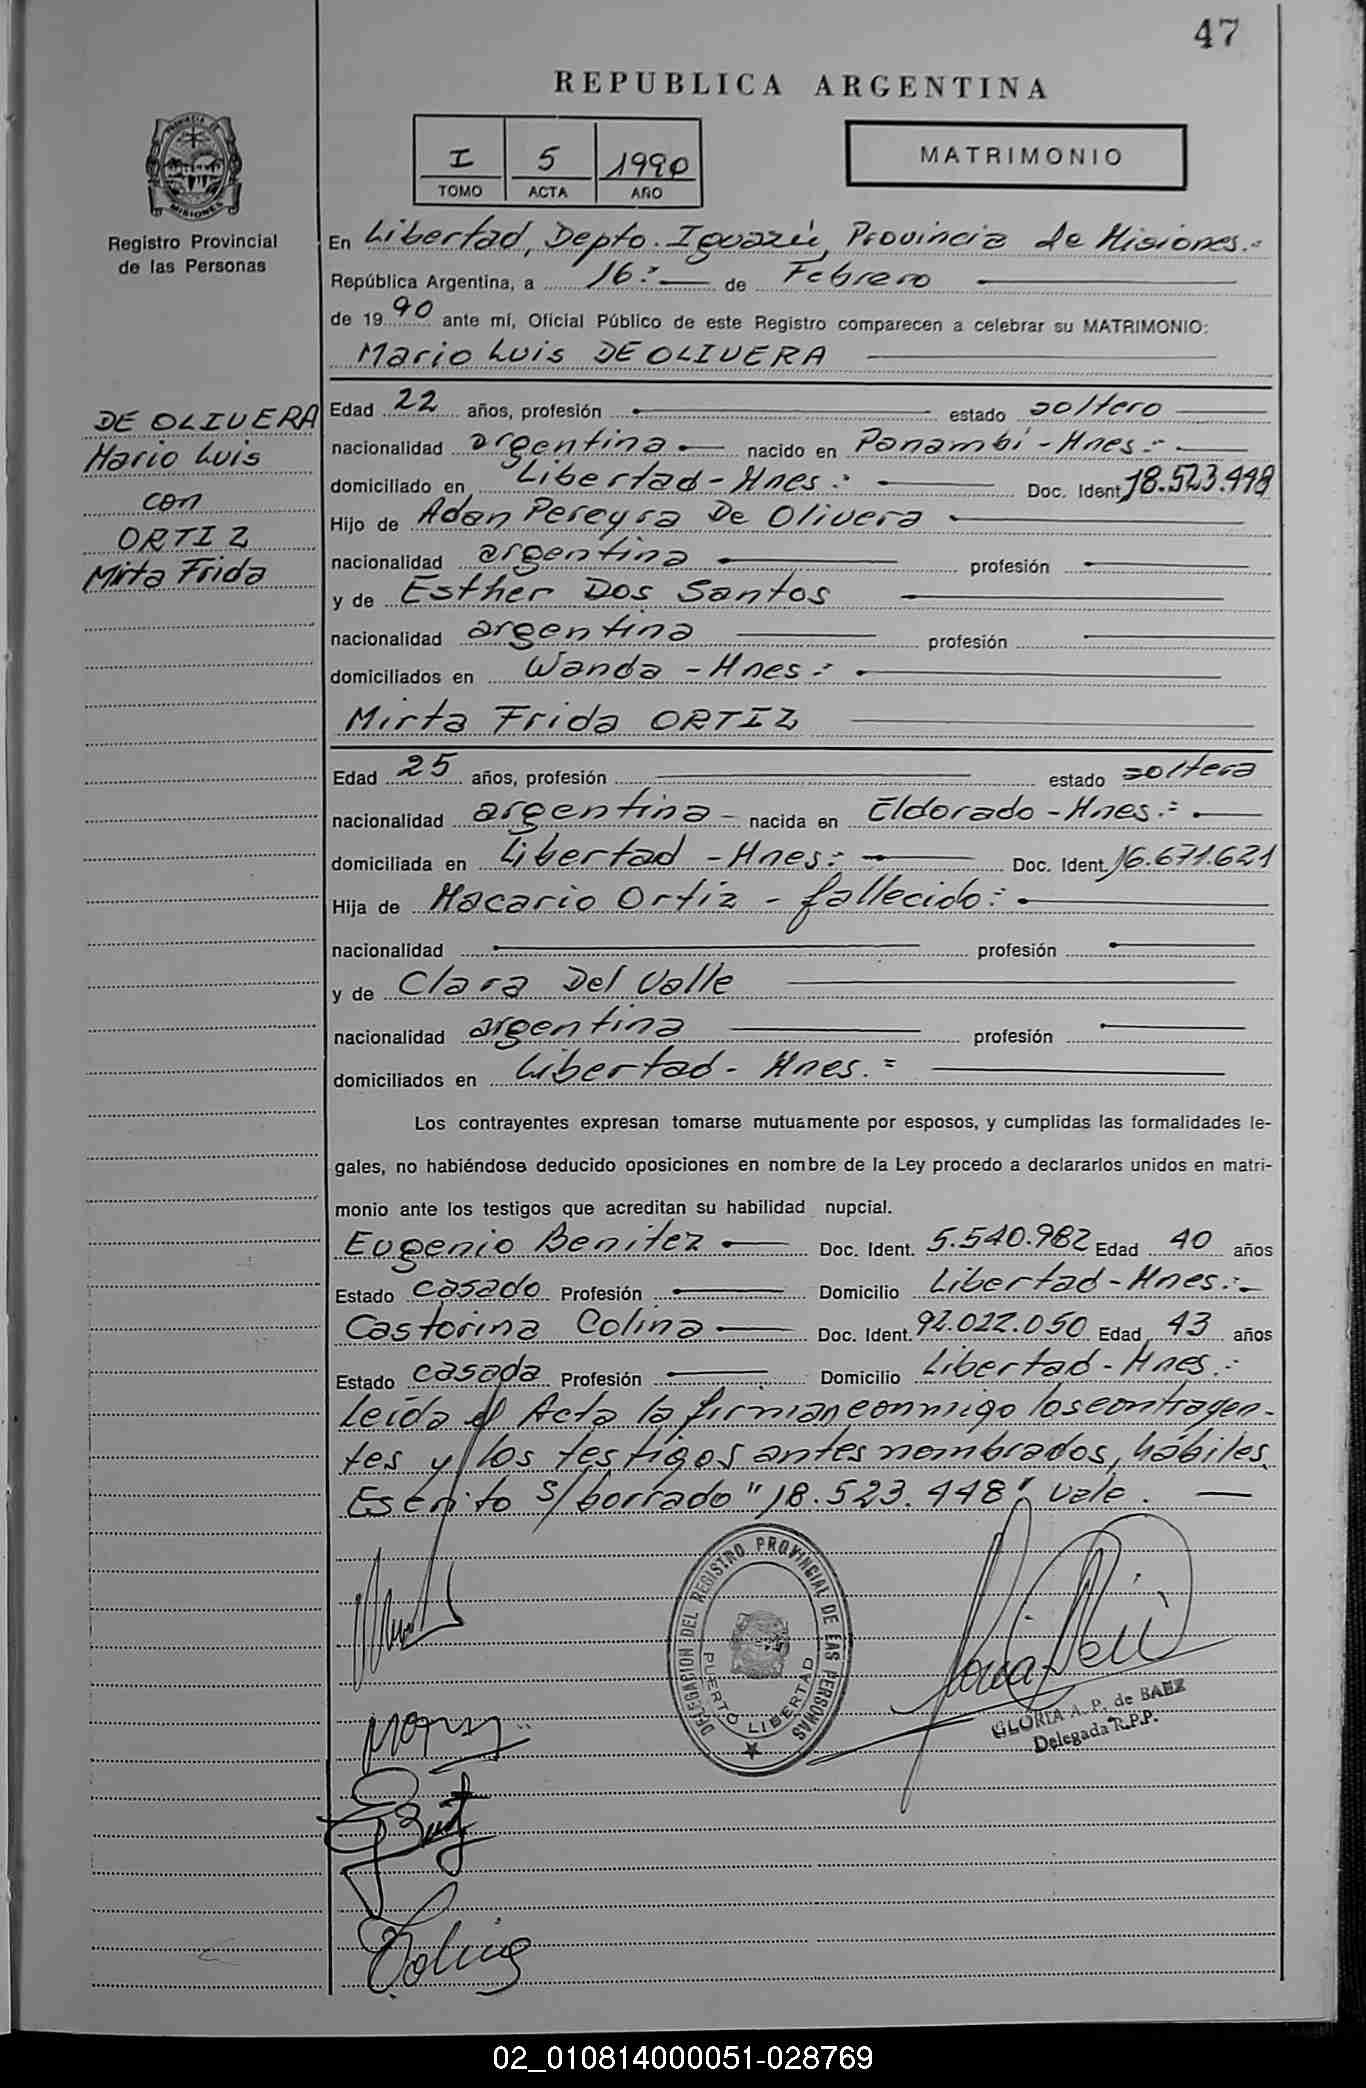 47
REPUBLICA ARGENTINA
I 5 1990
TOMO ACTA AÑO
MATRIMONIO
PROVINCIA DE MISIONES
Registro Provincial
de las Personas
DE OLIVERA
Mario Luis
con
ORTIZ
Mirta Frida
En Libertad, Depto. Iguazú, Provincia de Misiones.-
República Argentina, a 16:- de Febrero
de 1990 ante mí, Oficial Público de este Registro comparecen a celebrar su MATRIMONIO:
Mario Luis DE OLIVERA
Edad 22 años, profesión estado soltero
nacionalidad argentina nacido en Panambí - Mnes:-
domiciliado en Libertad - Mnes:- Doc. Ident. 18.523.448
Hijo de Adan Pereyra De Olivera
nacionalidad argentina profesión
y de Esther Dos Santos
nacionalidad argentina profesión
domiciliados en Wanda - Mnes:-
Mirta Frida ORTIZ
Edad 25 años, profesión estado soltera
nacionalidad argentina - nacida en Eldorado - Mnes:-
domiciliada en Libertad - Mnes:- Doc. Ident. 16.671.621
Hija de Macario Ortiz - fallecido:-
nacionalidad profesión
y de Clara Del Valle
nacionalidad argentina profesión
domiciliados en Libertad - Mnes.=
Los contrayentes expresan tomarse mutuamente por esposos, y cumplidas las formalidades le-
gales, no habiéndose deducido oposiciones en nombre de la Ley procedo a declararlos unidos en matri-
monio ante los testigos que acreditan su habilidad nupcial.
Eugenio Benitez Doc. Ident. 5.540.982 Edad 40 años
Estado casado Profesión Domicilio Libertad - Mnes:-
Castorina Colina Doc. Ident. 92.022.050 Edad 43 años
Estado casada Profesión Domicilio Libertad - Mnes:
Leída el Acta la firman conmigo los contrayen-
tes y los testigos antes nombrados, hábiles.
Escrito s/borrado "18.523.448" vale.
DELEGACION DEL REGISTRO PROVINCIAL DE LAS PERSONAS
PUERTO LIBERTAD
GLORIA A. P. de BAEZ
Delegada R.P.P.
Colina
02_010814000051-028769